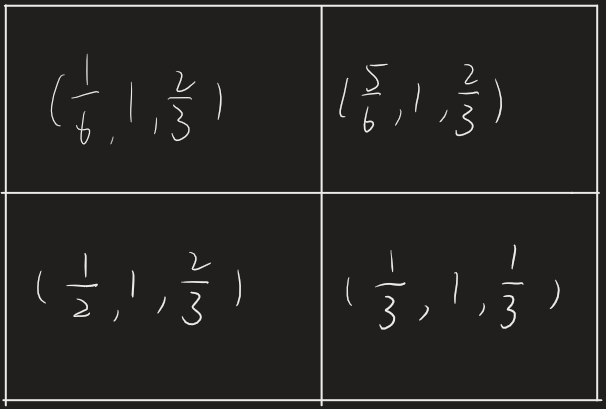 (1/6, 1, 2/3) (5/6, 1, 2/3)
(1/2, 1, 2/3) (1/3, 1, 1/3)